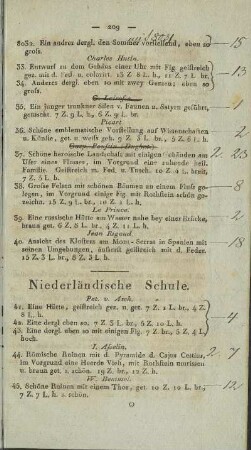 209
8032. Ein andres dergl. den Sommer vorstellend, eben so
gross.
Charles Hutin.
33. Entwurf zu dem Gehäus einer Uhr mit Fig. geistreich
gez. m. d. Fed. u. colorirt. 13 Z. 8 L. h. 11 Z. 7 L. br.
34. Anderes dergl. eben so mit zwey Fig. und eben so
gross.
35. Ein junger trunkner Silen v. Faunen u. Satyrn geführt,
getuscht. 7 Z. h. 7 Z. 9 L. br.
Picart.
36. Schöne emblematische Vorstellung auf Wissenschaften
u. Künste, get. u. weiss geh. 7 Z. 3 L. br. 5 Z. 6 L. h.
37. Schöne heroische Landschaft mit einigen Gebäuden am
Ufer eines Flusses, im Vorgrund eine ruhende heil.
Familie. Geistreich m. Fed. u. Tusch. 10 Z. 4 L. breit,
7 Z. 5 L. h.
38. Grosse Felsen mit schönen Bäumen an einem Fluss gelegen,
im Vorgrund einige Fig. mit Rothstein schön gezeichnet.
15 Z. br. 9 Z. 8 L. h.
Le Prince.
39. Eine russische Hütte am Wasser nahe bey einer Brücke,
braun get. 6 Z. 8 L. br. 4 Z. 11 L. h.
Jean Regaud.
40. Ansicht des Klosters am Mont-Serrat in Spanien mit
seinen Umgebungen, äusserst geistreich mit d. Feder.
15 Z. 3 L. br. 8 Z. h.
Niederländische Schule.
Pet. v. Asch.
41. Eine Hütte, geistreich gez. u. get. 7 Z. 2 L. br. 4 Z.
8 L. h.
42. Eine dergl. eben so. 7 Z. 5 L. br. 5 Z. 10 L. h.
43. Eine dergl. eben so mit einigen Fig. 7 Z. 2 L. br. 4 Z.
8 L. hoch.
I. Asselin.
44. Römische Ruinen mit d. Pyramide d. Cajus Cestius,
im Vorgrund eine Heerde Vieh, mit Rothstein umrissen
u. braun get. 1 Z. br. 9 Z. h.
W. Baumool.
45. Schöne Ruinen mit einem Thor, get. 10 Z. 10 L. br.
7 Z. 7 L. h. s. schön.
O
15
13
1
2
23
8
2
18
4
7
12